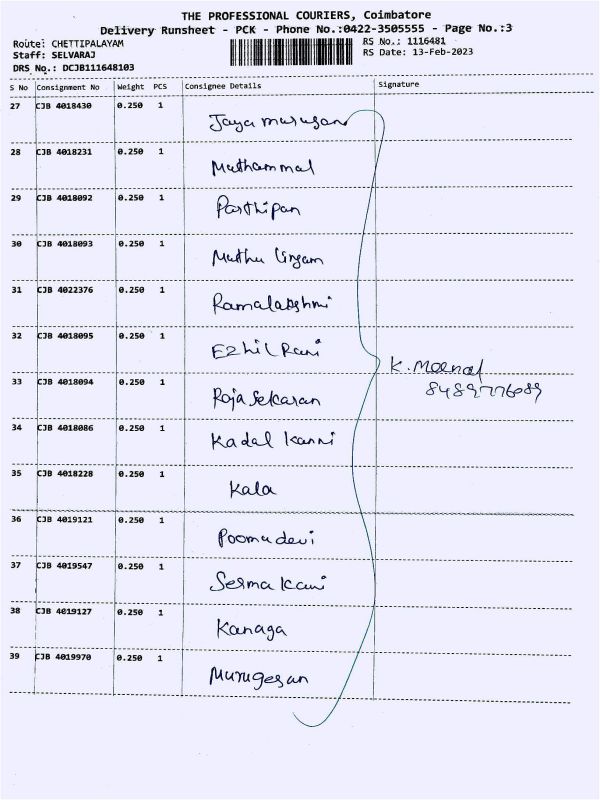 THE PROFESSIONAL COURIERS, Coimbatore
Delivery Runsheet - PCK - Phone No.:0422-3505555 - Page No.:3
Route: CHETTIPALAYAM RS No.: 1116481
Staff: SELVARAJ RS Date: 13-Feb-2023
DRS No.: DCJB111648103
S No Consignment No Weight PCS Consignee Details Signature
27 CJB 4018430 0.250 1
Jaya murugan
28 CJB 4018231 0.250 1
Muthammal
29 CJB 4018092 0.250 1
Parthipan
30 CJB 4018093 0.250 1
Muthu lingam
31 CJB 4022376 0.250 1
Ramalakshmi
32 CJB 4018095 0.250 1
Ezhil Rani
K. Meenal
33 CJB 4018094 0.250 1
8489776089
Raja Sekaran
34 CJB 4018086 0.250 1
Kadal Kanni
35 CJB 4018228 0.250 1
Kala
36 CJB 4019121 0.250 1
Pooma devi
37 CJB 4019547 0.250 1
Serma Kani
38 CJB 4019127 0.250 1
Kanaga
39 CJB 4019970 0.250 1
Murugesan